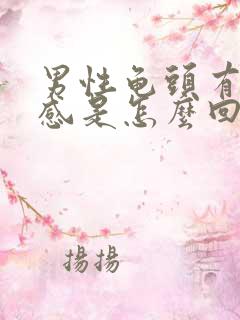 男性龟頭有
感是怎麼回
揚揚